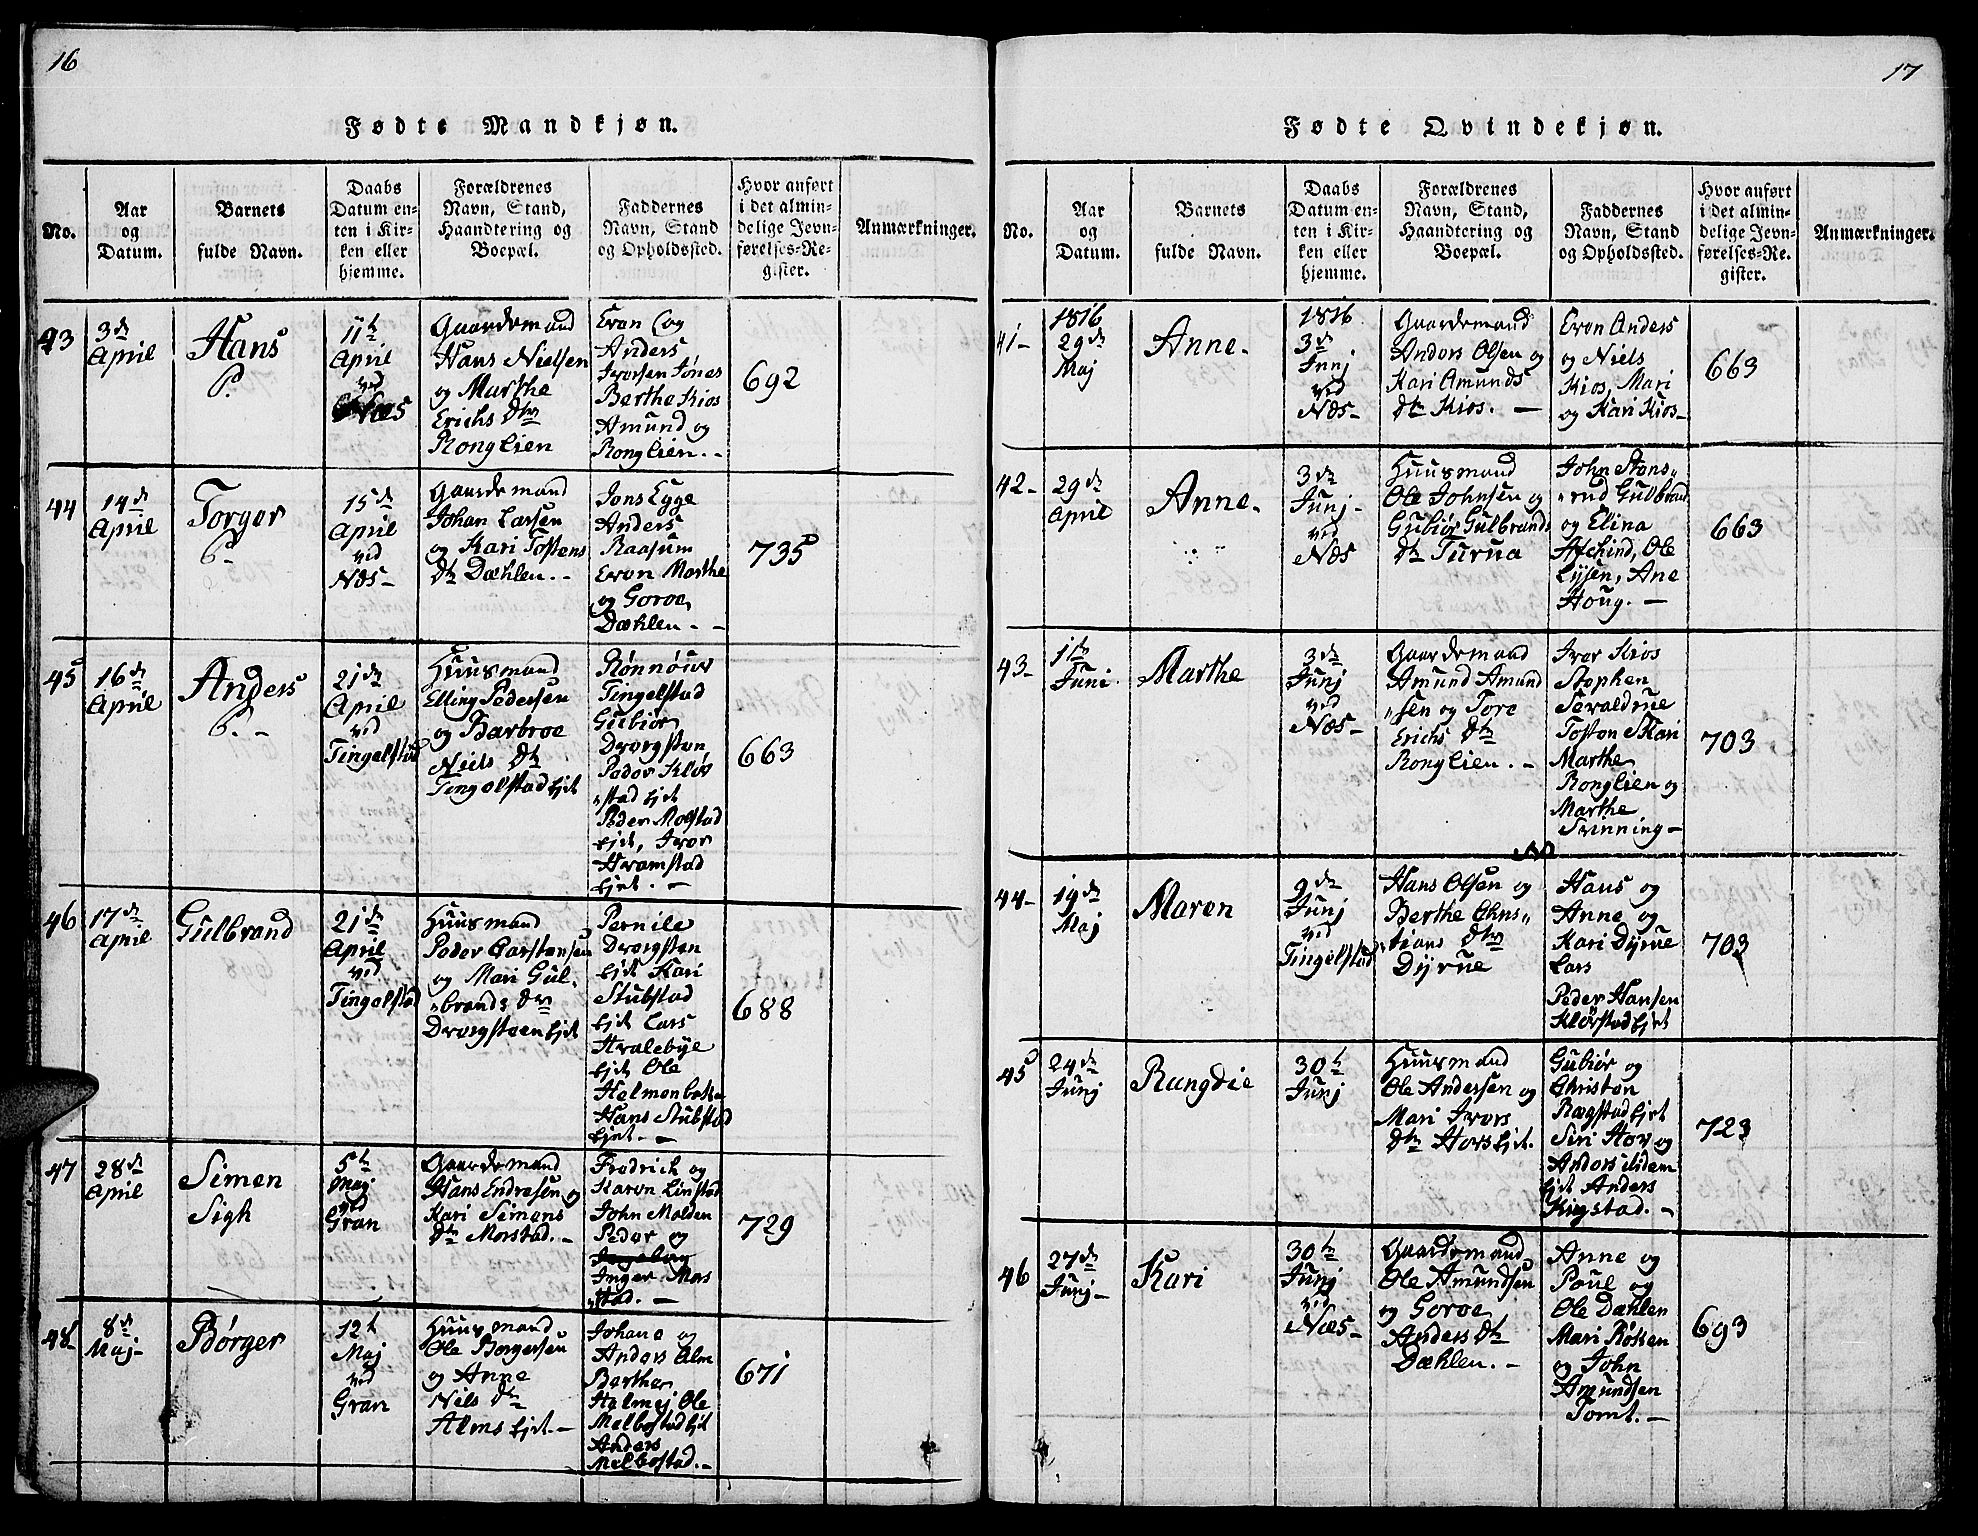 16
Fødte Mandkjøn.
No.
Aar
og
Datum.
Barnets
fulde Navn.
Daabs
Datum en-
ten i Kir-
ken eller
hjemme.
Forældrenes
Navn, Stand,
Haandtering og
Boepæl.
Faddernes
Navn, Stand
og Opholdssted.
Hvor anført
i det almin-
delige Jevn-
førelses-Re-
gister.
Anmærkninger.
43
3de
April
Hans
11te
April
ved
Næs
Gaardemand
Hans Nielsen
og Marthe
Erichs Dtr
Ronglien
Even
og
Anders
Iversen
Berthe Kios
Amund og
Ronglien.
692
44
14de
April
Torger
15de
April
ved
Næs
Gaardemand
Johan Larsen
og Kari Tostens
Dtr Dæhlen.
Jens Egge
Anders
Raasum
Even Marthe
og Goroe
Dæhlen.
735
45
16de
April
Anders
21de
April
ved
Tingelstad
Huusmand
Elling Pedersen
og Barbroe
Niels Dtr
Tingelstad Ejet
Rønnøuv
Tingelstad
Gubiør
Dvergsten,
Peder Kløv
„stad Ejet
Peder Molstad
Ejet, Iver
Hvamstad
Ejet.
663
46
17de
April
Gulbrand
21de
April
ved
Tingelstad
Huusmand
Peder Carstensen
og Mari Gul-
„brands Dtr
Dvergsteen Ejet
Pernile
Dvergsten
Ejet Kari
Stubstad
Ejet Lars
Hvalebye
Ejet Ole
Helmenbakke
Hans Stubstad
Ejet.
688
47
28de
April
Simen
Sigh
5te
Maj
ved
Gran
Gaardemand
Hans Endresen og
Kari Simens
Dtr Morstad.
Fredrich og
Karen Linstad
John Molden
Peder og
Inger Mor
„stad.
729
48
8de
Maj
Børger
12te
Maj
ved
Gran
Huusmand
Ole Børgersen
og Anne
Niels Dtr
Alms Ejet
Johane og
Anders Alm
Berthe
Halmej Ole
Melbostad Ejet
Anders
Melbostad.
671
17
Fødte Qvindekjøn.
No.
Aar
og
Datum.
Barnets
fulde Navn.
Daabs
Datum en-
ten i Kir-
ken eller
hjemme.
Forældrenes
Navn, Stand,
Haandtering og
Boepæl.
Faddernes
Navn, Stand
og Opholdssted.
Hvor anført
i det almin-
delige Jevn-
førelses-Re-
gister.
Anmærkninger.
41
1816
29de
Maj
Anne
1816
3de
Junj
ved
Næs
Gaardemand
Anders Olsen og
Kari Amunds
Dtr Kios.
Even Anders
og Niels
Kios, Mari
og Kari Kios
663
42
29de
April
Anne
3de
Junj
ved
Næs
Huusmand
Ole Johnsen og
Gubiør Gulbrands
Dtr Turua
John Stens„
„rud Gulbrand
og Elina
Afchind, Ole
Lysen, Ane
Houg.
663
43
1te
Juni
Marthe
3de
Junj
ved
Næs
Gaardemand
Amund Amund
„sen og Tore
Erichs Dtr
Ronglien.
Iver Kios
Stephen
Tosten
Marthe
Ronglien og
Marthe
Svinning
703
44
19de
Maj
Maren
9de
Junj
ved
Tingelstad
Hans Olsen og
Berthe Chris„
„tians Dtr
Dyrue
Hans og
Anne og
Kari Dyrue
Lars
Peder Hansen
Kløvstad Ejet
703
45
24de
Junj
Rangdie
30te
Junj
Huusmand
Ole Andersen og
Mari Ivers
Dtr Hors Ejet.
Gubiør og
Christen
Rægstad Ejet
Siri Hov og
Anders
Ejet Anders
Kigstad.
723
46
27de
Junj
Kari
30te
Junj
ved
Næs
Gaardemand
Ole Amundsen
og Goroe
Anders Dtr
Dæhlen.
Anne og
Poul og
Ole Dæhlen
Mari Røken
og John
Amundsen
Tomt.
693